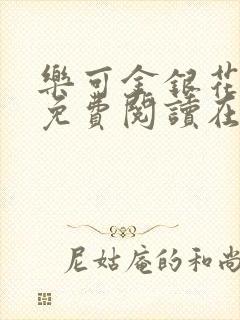 樂可金銀花
免費閱讀在
尼姑庵的和尚